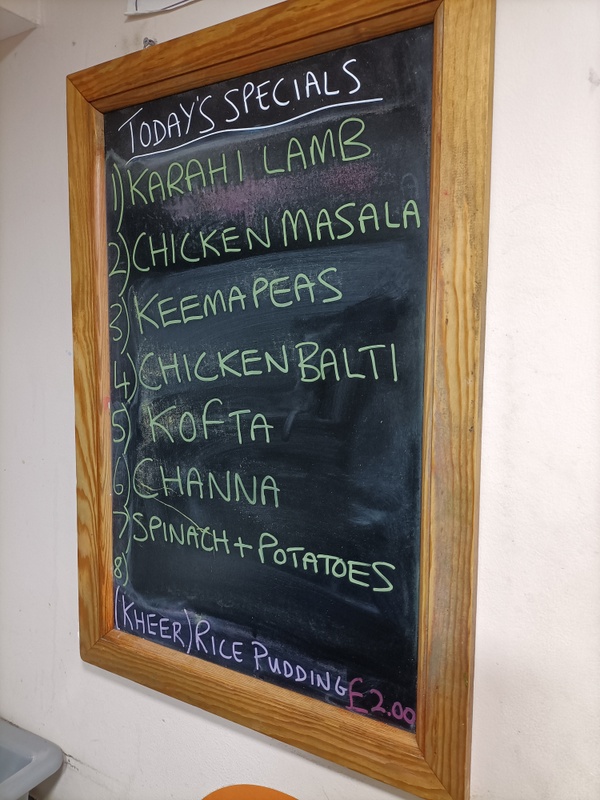 TODAY'S SPECIALS
1) KARAHI LAMB
2) CHICKEN MASALA
3) KEEMA PEAS
4) CHICKEN BALTI
5) KOFTA
6) CHANNA
7) SPINACH + POTATOES
8)
(KHEER) RICE PUDDING £2.00